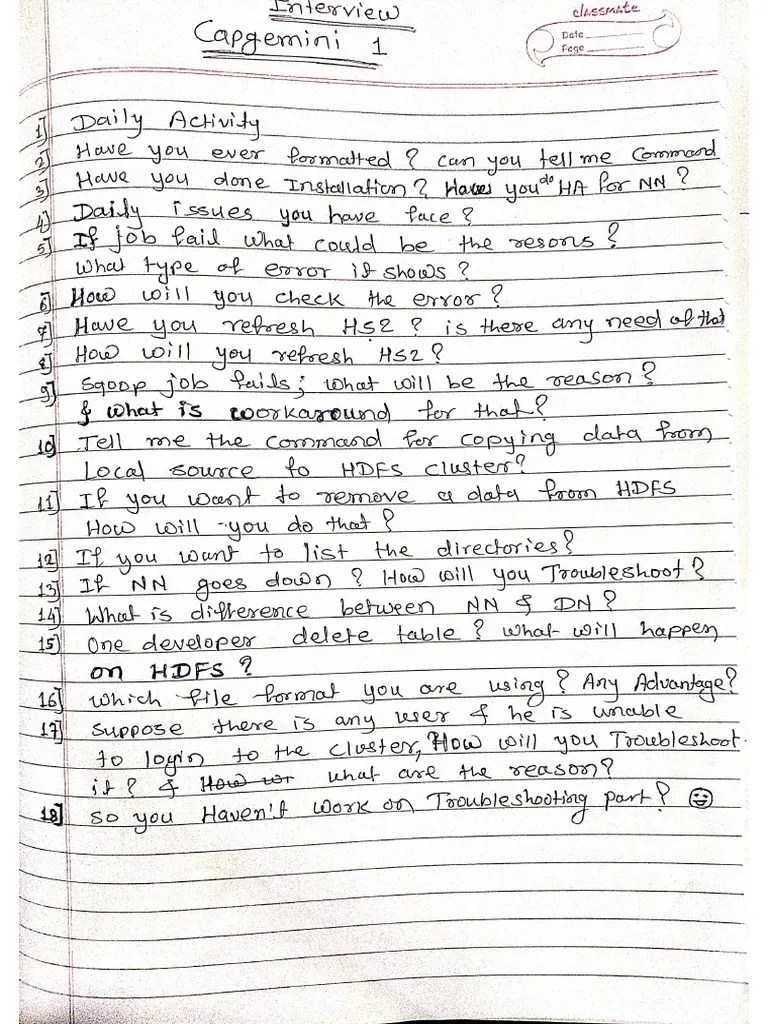 Interview
Capgemini 1
classmate
Date
Page
1] Daily Activity
2] Have you ever formatted? Can you tell me Command
3] Have you done Installation? Have you do HA for NN?
4] Daily issues you have face?
5] If job fail what could be the resons?
What type of error it shows?
6] How will you check the error?
7] Have you refresh HS2? is there any need of that
8] How will you refresh HS2?
9] Sqoop job fails; what will be the reason?
& what is workaround for that?
10] Tell me the command for copying data from
Local source to HDFS cluster?
11] If you want to remove a data from HDFS
How will you do that?
12] If you want to list the directories?
13] If NN goes down? How will you Troubleshoot?
14] What is difference between NN & DN?
15] One developer delete table? what will happen
on HDFS?
16] which file format you are using? Any Advantage?
17] suppose there is any user & he is unable
to login to the cluster, How will you Troubleshoot
it? & How wr what are the reason?
18] so you Haven't work on Troubleshooting part? 😃